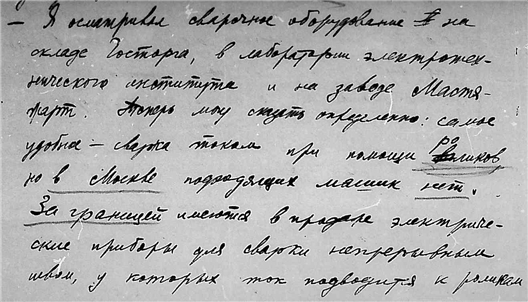 — Я осматривал сварочное оборудование на
складе Госторга, в лаборатории электротех-
нического института и на заводе Мастя-
жарт. Теперь могу сказать определенно: самое
удобное — сварка током при помощи роликов
но в Москве подходящих машин нет.
За границей имеются в продаже электриче-
ские приборы для сварки непрерывным
швом, у которых ток подводится к роликам